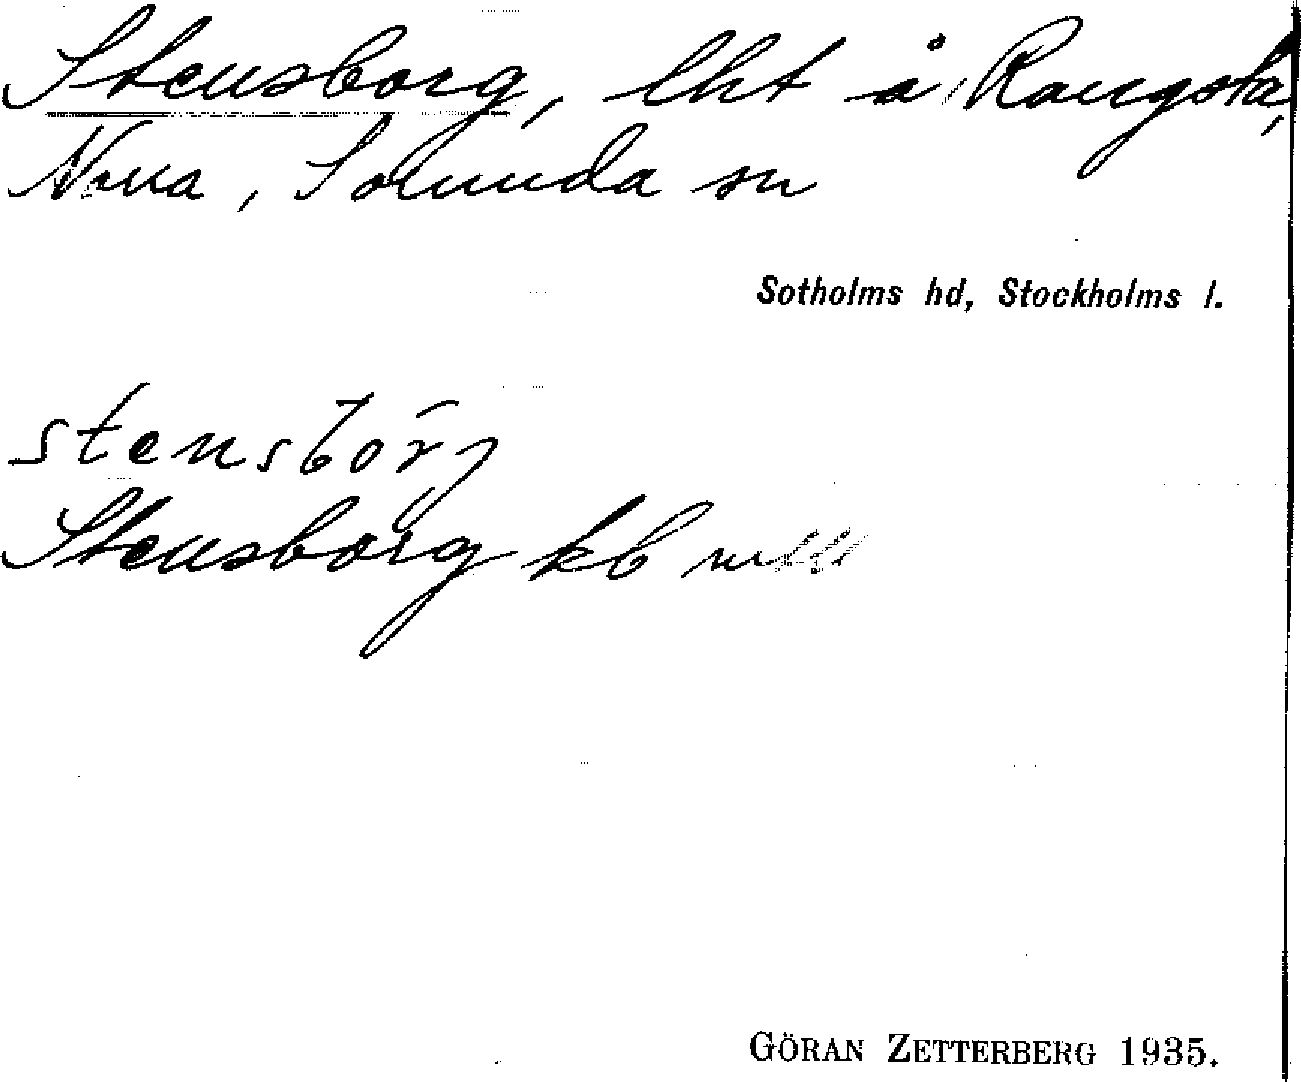 Stensborg, lht å Rangsta,
Norra, Sorunda sn
Sotholms hd, Stockholms l.
stensbörj
Stensborg kb
GÖRAN ZETTERBERG 1935.